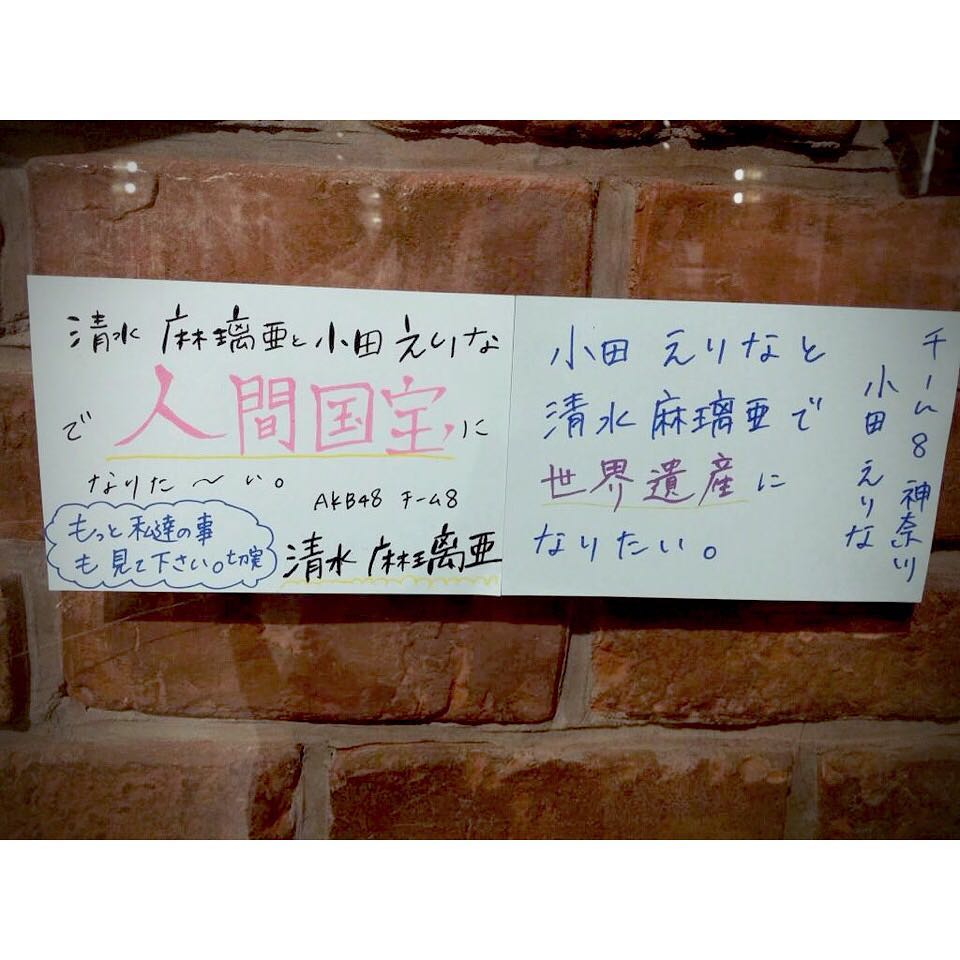 清水 麻璃亜と小田えりな
で 人間国宝に
なりた〜い。
AKB48 チーム8
清水 麻璃亜
もっと私達の事
も見て下さい。切実
小田 えりなと
清水 麻璃亜で
世界遺産に
なりたい。
チーム8 神奈川
小田 えりな